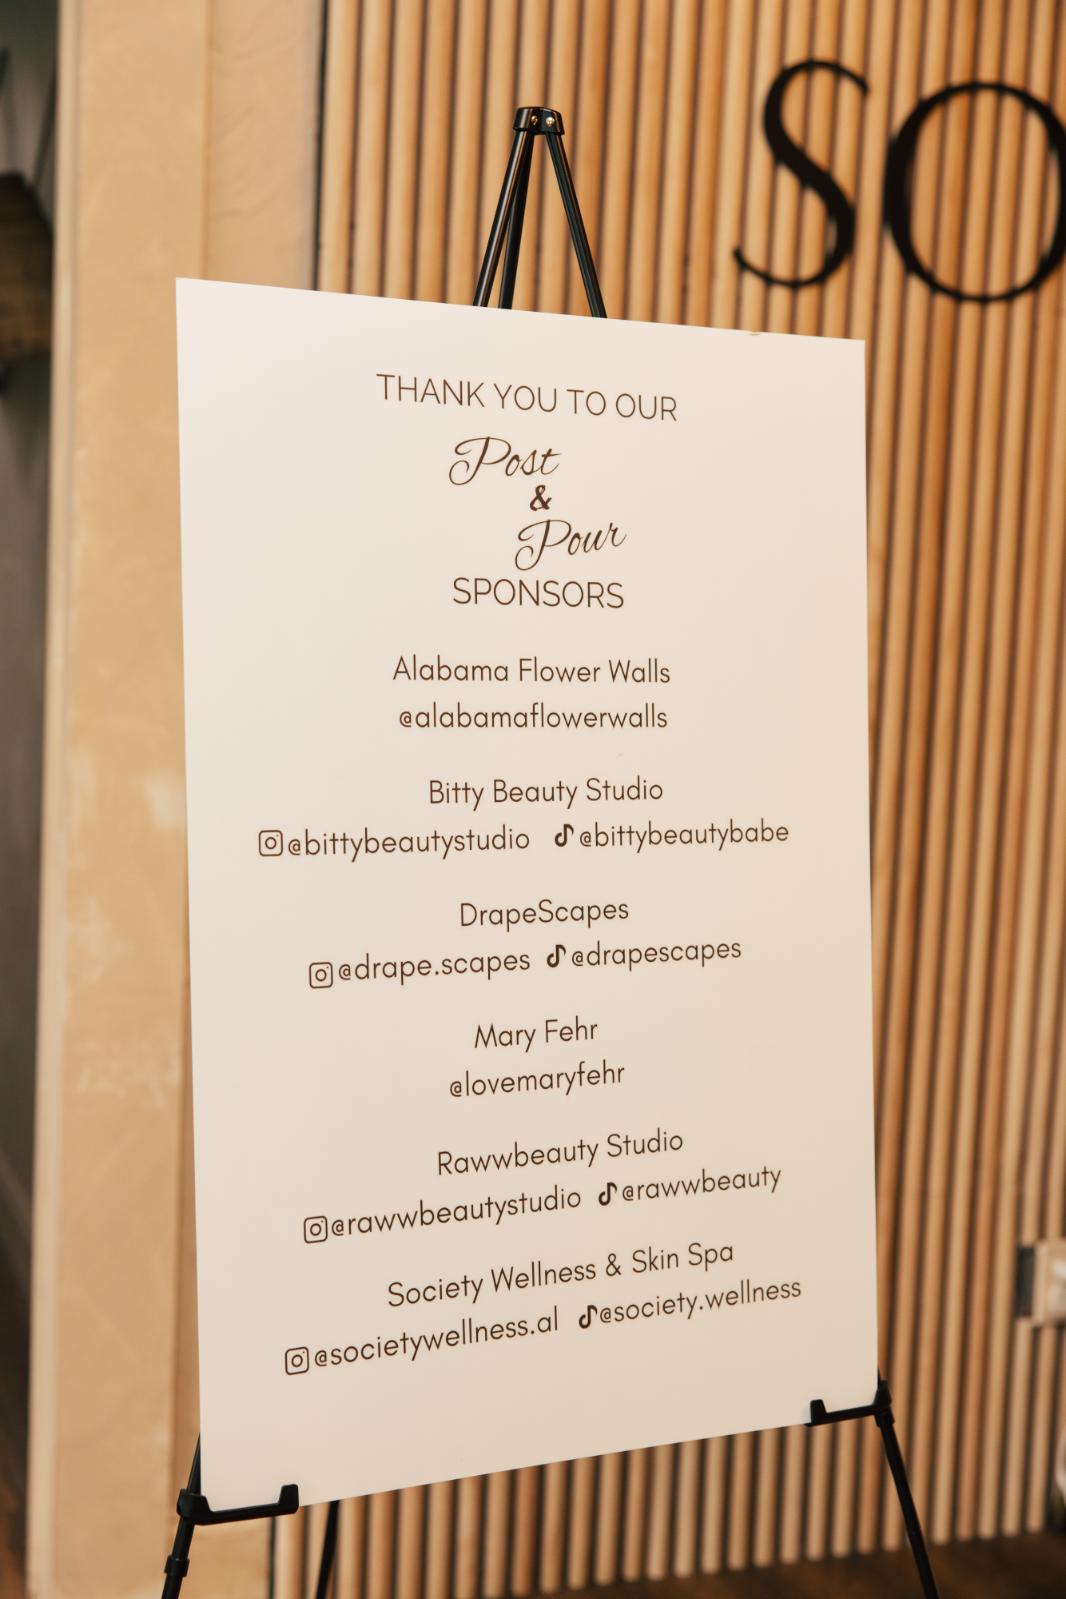 SO
THANK YOU TO OUR
Post
&
Pour
SPONSORS
Alabama Flower Walls
@alabamaflowerwalls
Bitty Beauty Studio
@bittybeautystudio @bittybeautybabe
DrapeScapes
@drape.scapes @drapescapes
Mary Fehr
@lovemaryfehr
Rawwbeauty Studio
@rawwbeautystudio @rawwbeauty
Society Wellness & Skin Spa
@societywellness.al @society.wellness